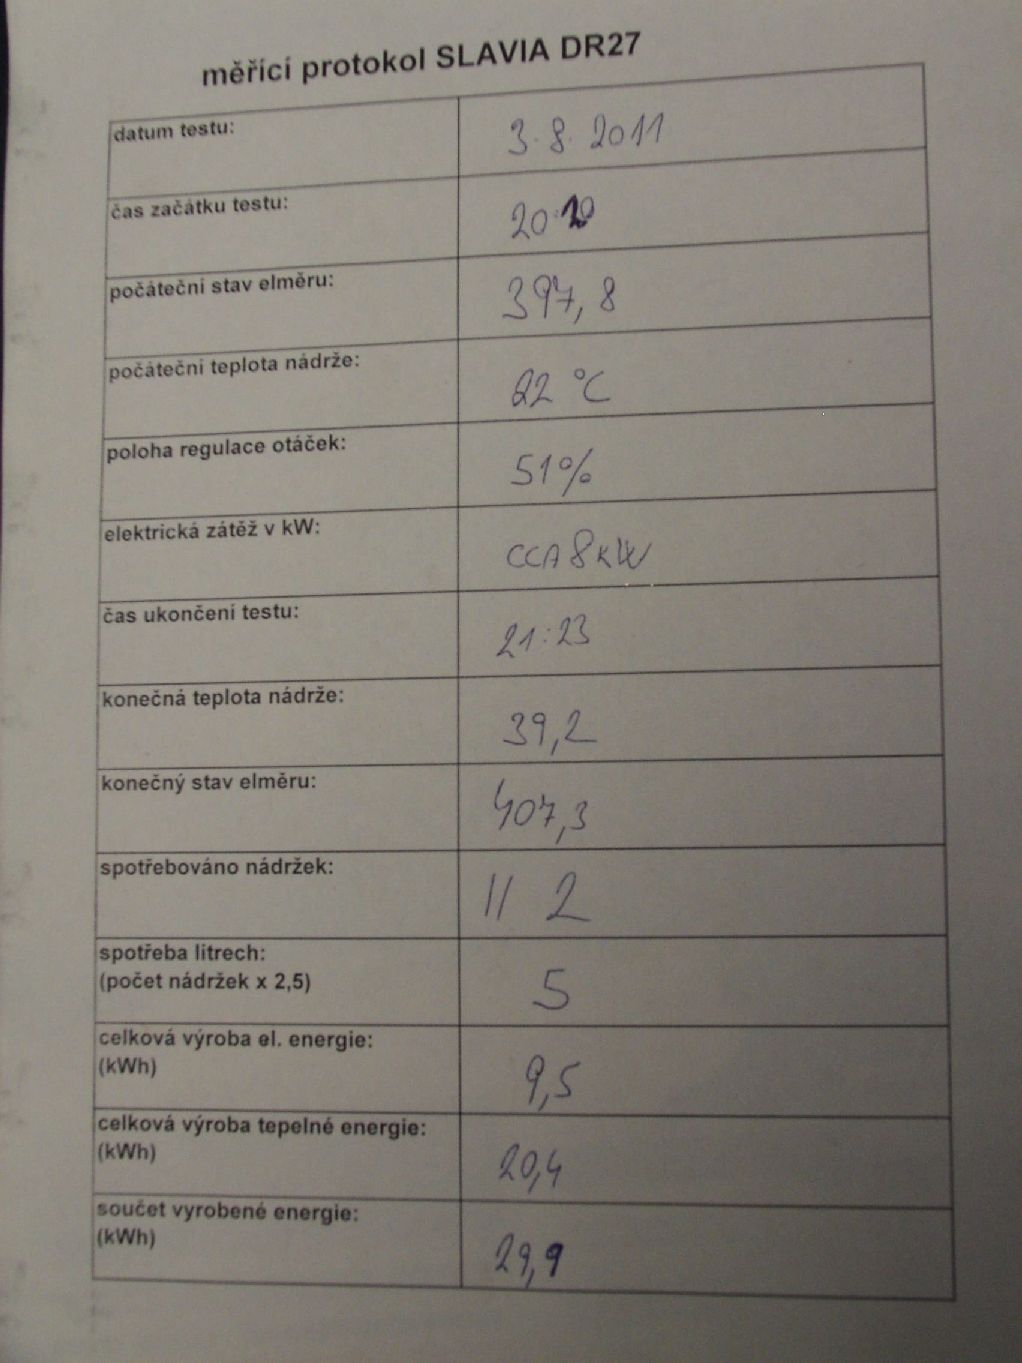 měřící protokol SLAVIA DR27
datum testu: 3.8.2011
čas začátku testu: 20:20
počáteční stav elměru: 397,8
počáteční teplota nádrže: 22 °C
poloha regulace otáček: 51%
elektrická zátěž v kW: CCA 8 kW
čas ukončení testu: 21:23
konečná teplota nádrže: 39,2
konečný stav elměru: 407,3
spotřebováno nádržek: II 2
spotřeba litrech: 5
(počet nádržek x 2,5)
celková výroba el. energie: 9,5
(kWh)
celková výroba tepelné energie: 20,4
(kWh)
součet vyrobené energie: 29,9
(kWh)